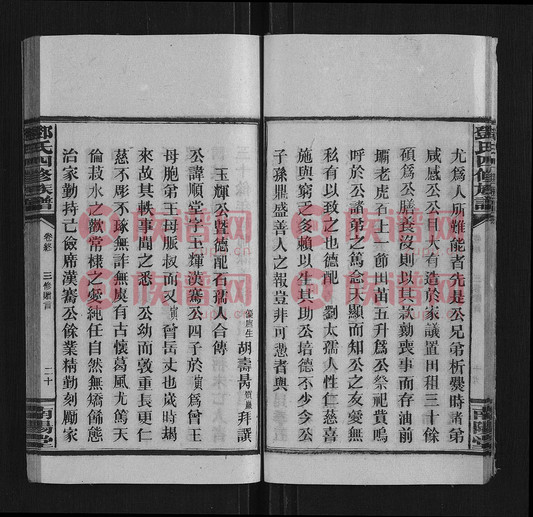 尤爲人所難能者先是公兄弟析爨時諸弟
咸感公公目大有造於家議置田租三十餘
碩爲公膳養沒則以其款勷喪事而存油前
壩老虎石上一節田苗五升爲公祭祀費嗚
呼於公諸弟之篤念天顯而知公之友愛無
私有以致之也德配劉太孺人性仁慈喜
施與窮乏多賴以生其助公培德不少今公
子孫鼎盛善人之報豈非可恃者與
鄧氏四修族譜
玉輝公曁德配石孺人合傳
優廩生胡壽昺拜撰
公諱順堂字玉輝漢騫公四子於瀕爲曾王
母胞弟王母脤叔而又瀕曾岳丈也歲時場
來故其軼事聞之悉公幼而敦重長更仁
慈不彫不琢無詐無虞有古懷葛風尤篤天
倫菽水之歡常棣之愛純任自然無矯僞態
治家勤持己儉席漢騫公餘業精勤刻勵家
鄧氏四修族譜
卷終
三修贈言
二十
南陽堂
族譜网